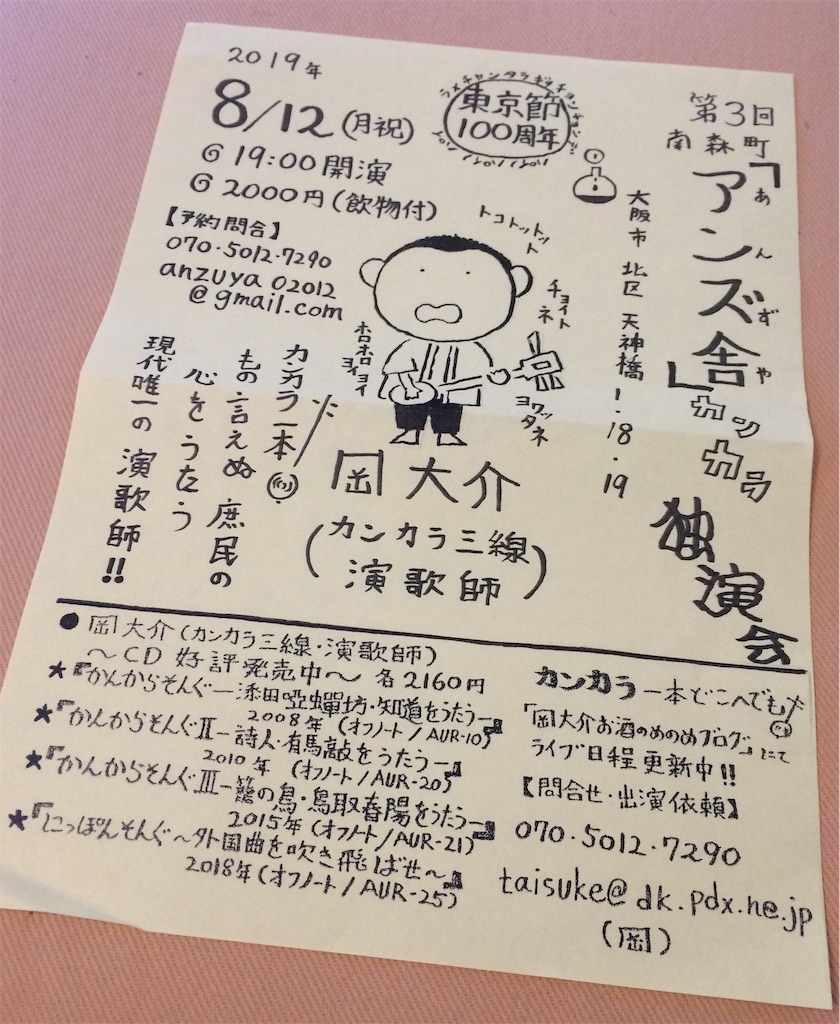 2019年
8/12(月祝)
19:00開演
2000円(飲物付)
【予約問合】
070・5012・7290
anzuya02012
@gmail.com
東京節
100周年
第3回
南森町
「アンズ舎」
あんずや
カンカラ
独演会
大阪市 北区 天神橋1・18・19
トコトットット
チョイトネ
ヨワッタネ
ホロホロ
ヨイヨイ
カンカラ一本
もの言えぬ 庶民の
心をうたう
現代唯一の 演歌師!!
岡大介
(カンカラ三線
演歌師)
●岡大介(カンカラ三線・演歌師)
〜CD好評発売中〜 各2160円
★『かんからそんぐー添田啞蟬坊・知道をうたうー』
2008年(オフノート/AUR-10)
★『かんからそんぐⅡー詩人・有馬敲をうたうー』
2010年(オフノート/AUR-20)
★『かんからそんぐⅢー籠の鳥・鳥取春陽をうたうー』
2015年(オフノート/AUR-21)
★『にっぽんそんぐ〜外国曲を吹き飛ばせ〜』
2018年(オフノート/AUR-25)
カンカラ一本どこへでも
「岡大介お酒のめのめブログ」にて
ライブ日程更新中!!
【問合せ・出演依頼】
070・5012・7290
taisuke@dk.pdx.ne.jp
(岡)